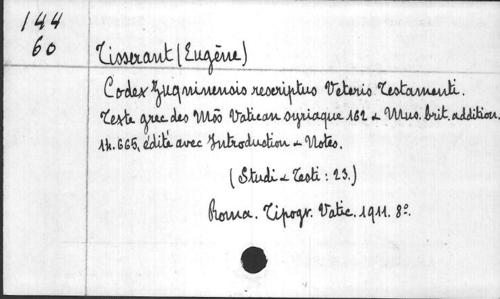 144
60
Tisserant (Eugène)
Codex Zuqninensis rescriptus Veteris Testamenti.
Texte grec des Mss Vatican syriaque 162 & Mus. brit. addition.
14.665, édité avec Introduction & Notes.
(Studi e Testi : 23.)
Roma. Tipogr. Vatic. 1911. 8º.